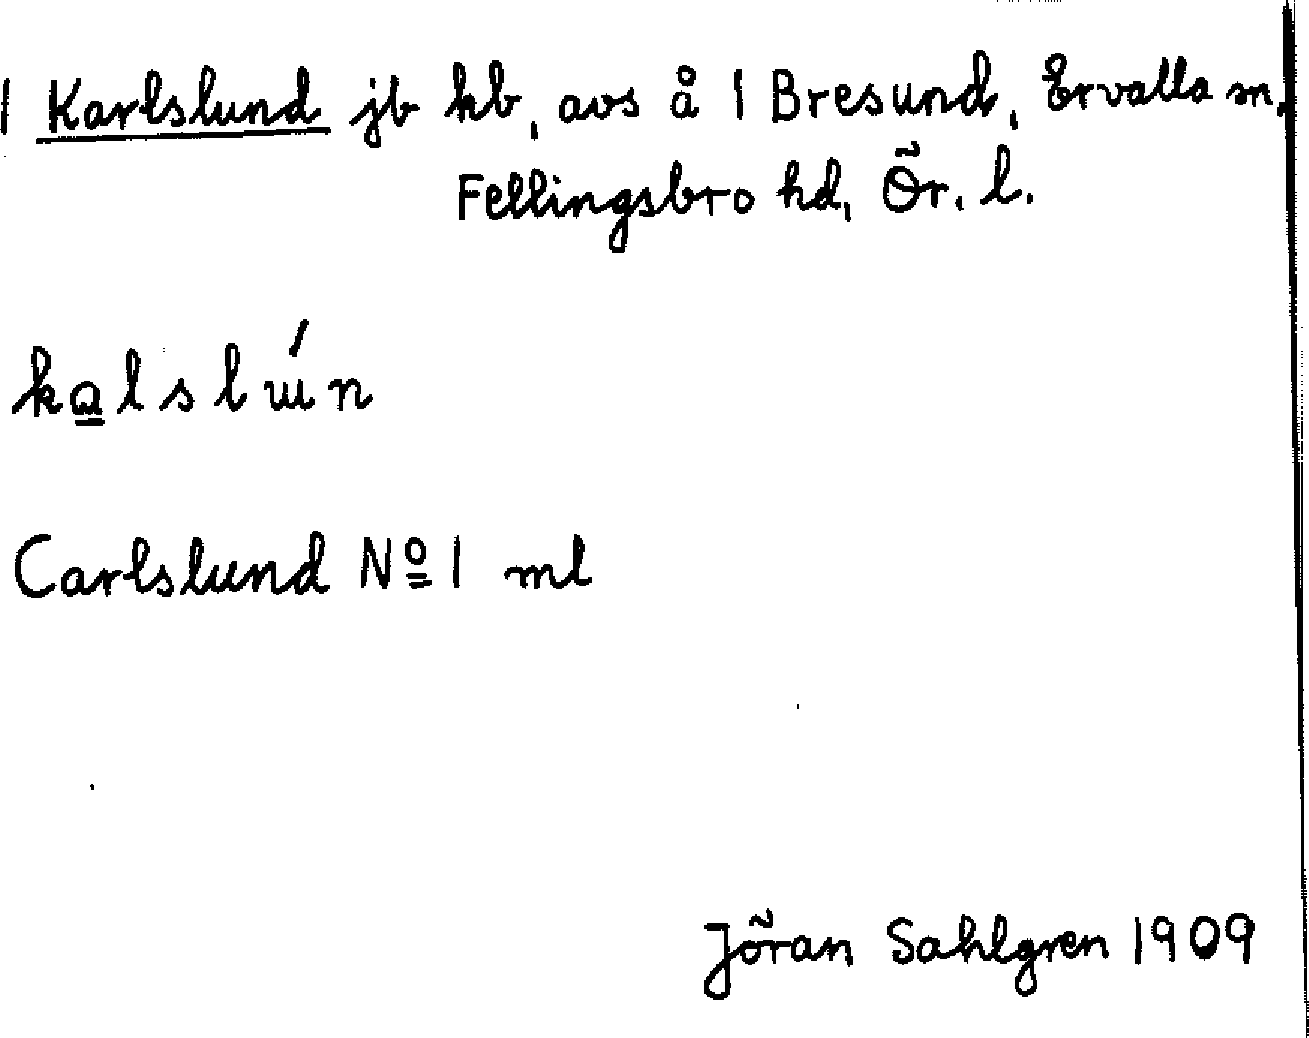 1 Karlslund jb hb, avs å 1 Bresund, Ervalla sn,
Fellingsbro hd, Ör. l.
kalslɯ́n
Carlslund Nº 1 ml
Jöran Sahlgren 1909